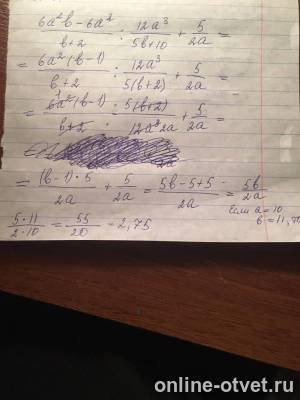 6a²b - 6a² / b+2 : 12a³ / 5b+10 + 5 / 2a =
= 6a²(b-1) / b+2 : 12a³ / 5(b+2) + 5 / 2a =
= 6a²(b-1) / b+2 · 5(b+2) / 12a³ 2a + 5 / 2a =
= (b-1)·5 / 2a + 5 / 2a = 5b-5+5 / 2a = 5b / 2a
Если a=10
b=11,
5·11 / 2·10 = 55 / 20 = 2,75
online-otvet.ru